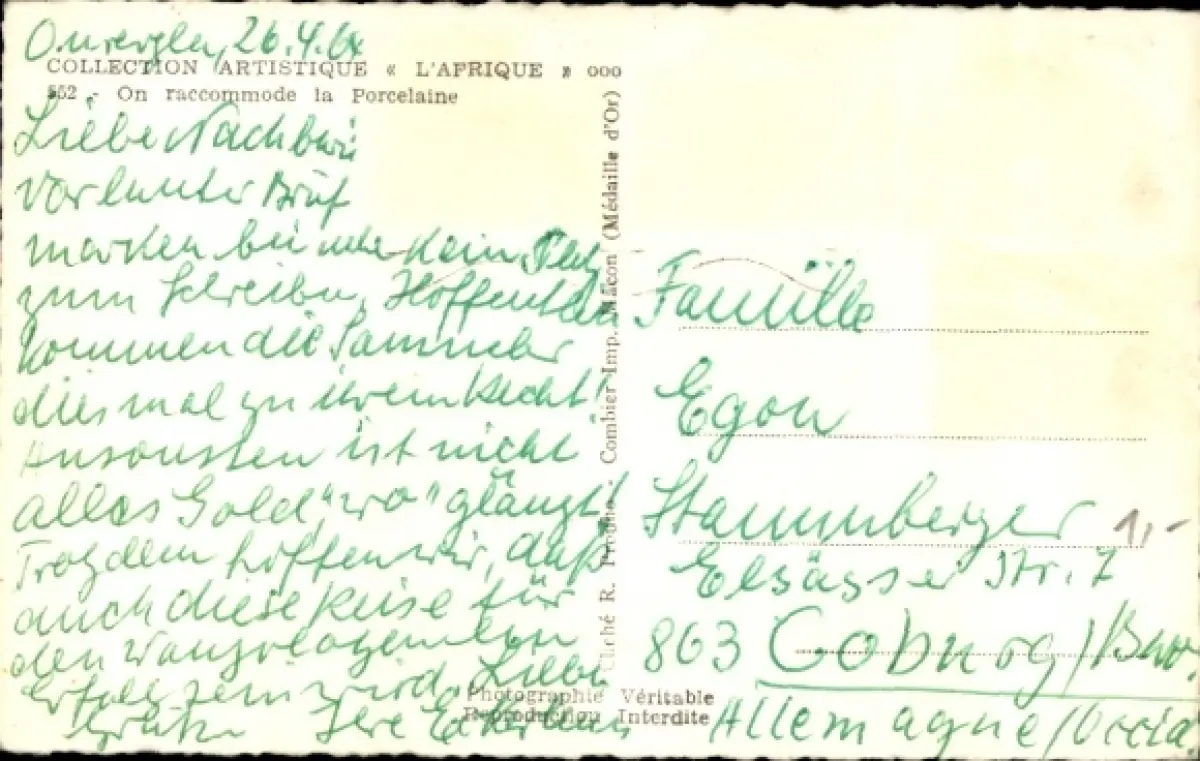 Ouergla, 26.4.64
COLLECTION ARTISTIQUE « L'AFRIQUE » 000
552 - On raccommode la Porcelaine
Liebe Nachbarn
vor lauter Brief
marken kein Platz
zum Schreiben, Hoffentlich
kommen die
diesmal zu Recht!
Ansonsten ist nicht
alles Gold "wo" glänzt!
Trotzdem hoffen wir, daß
auch diese Reise für
ein
Erfolg sein wird. Liebe
Grüße Ihre
Cliché R. Prouho - Combier Imp. Mâcon (Médaille d'Or)
Photographie Véritable
Reproduction Interdite
Familie
Egon
Stammberger
1,-
Elsässer Str. 7
863 Coburg/
Allemagne/